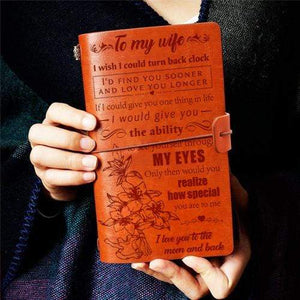 To my wife
I wish I could turn back clock
I'D FIND YOU SOONER
AND LOVE YOU LONGER
If I could give you one thing in life
I would give you
the ability
yourself through
MY EYES
Only then would you
realize
how special
you are to me
I love you to the
moon and back